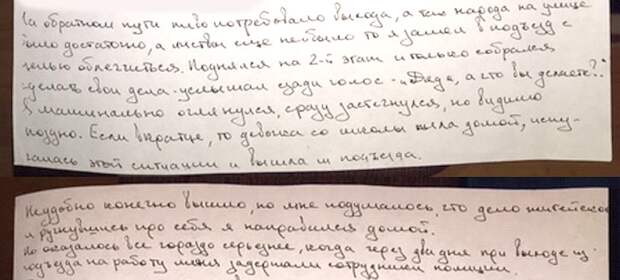 На обратном пути пиво потребовало выхода, а так народа на улице
было достаточно, а листвы еще не было то я зашел в подъезд с
целью облегчиться. Поднялся на 2-й этаж и только собрался
сделать свои дела - услышал сзади голос - „Дядя, а что вы делаете?"
Я машинально оглянулся, сразу застегнулся, но видимо
поздно. Если вкратце, то девочка со школы шла домой, испу-
галась этой ситуации и вышла из подъезда.
Неудобно конечно вышло, но мне подумалось, что дело житейское
и ругнувшись про себя я направился домой.
Но оказалось все гораздо серьезнее, когда через два дня при выходе из
подъезда на работу меня задержали сотрудники полиции.